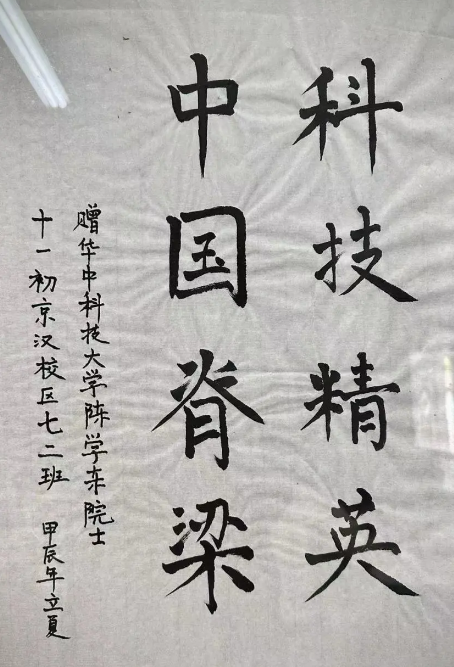 科技精英
中国脊梁
赠华中科技大学陈学东院士
十一初京汉校区七二班 甲辰年立夏